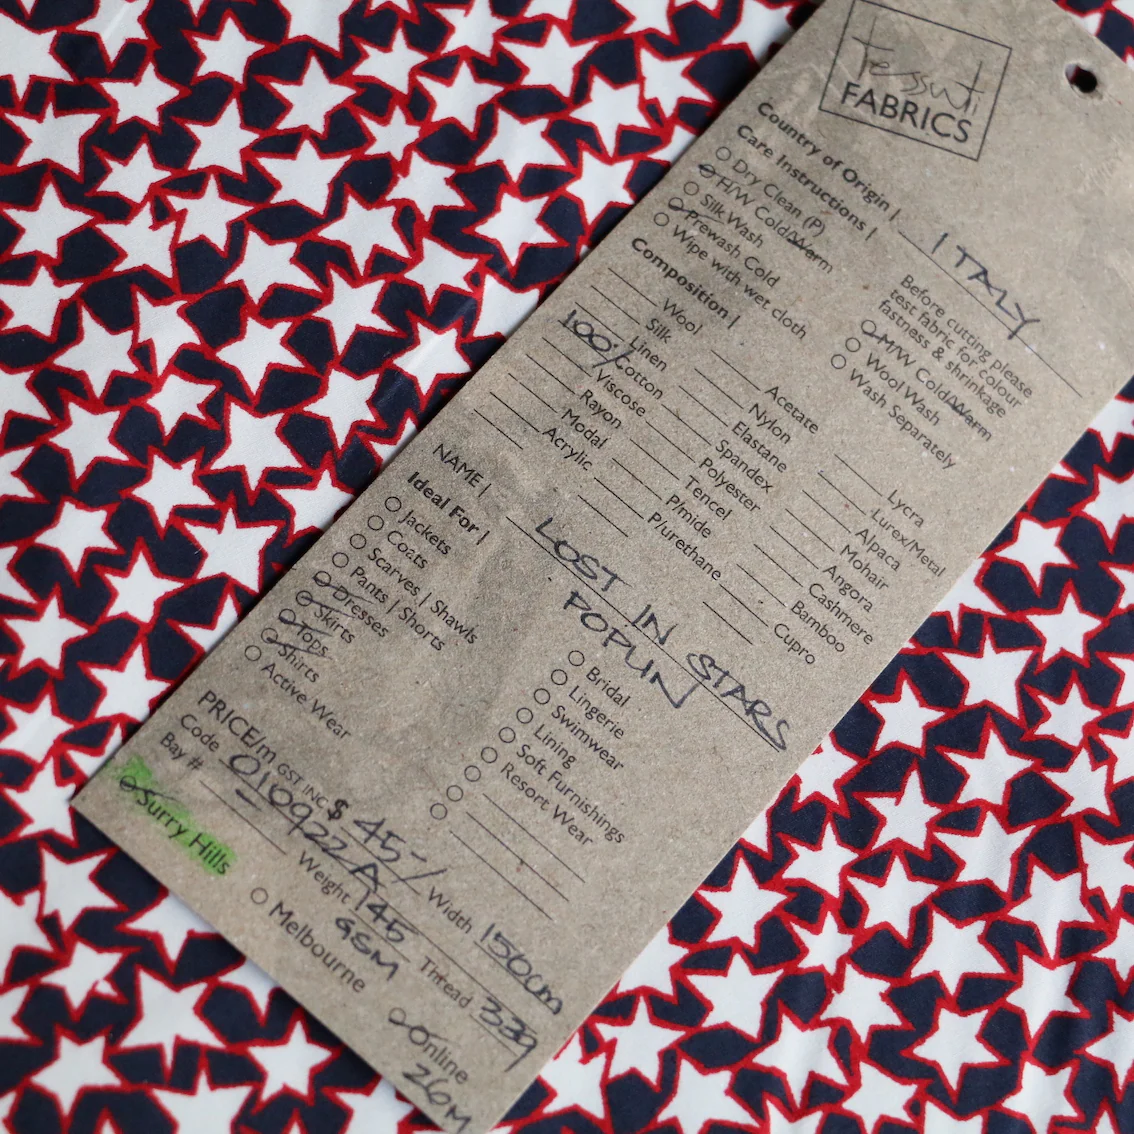 Tessuti
FABRICS
Country of Origin | ITALY
Care Instructions |
Dry Clean (P)
H/W Cold/Warm
Silk Wash
Prewash Cold
Wipe with wet cloth
Before cutting please
test fabric for colour
fastness & shrinkage
M/W Cold/Warm
Wool Wash
Wash Separately
Composition |
Wool
Silk
Linen
100% Cotton
Viscose
Rayon
Modal
Acrylic
Acetate
Nylon
Elastane
Spandex
Polyester
Tencel
P/mide
P/urethane
Lycra
Lurex/Metal
Alpaca
Mohair
Angora
Cashmere
Bamboo
Cupro
NAME | LOST IN STARS
POPLIN
Ideal For |
Jackets
Coats
Scarves | Shawls
Pants | Shorts
Dresses
Skirts
Tops
Shirts
Active Wear
Bridal
Lingerie
Swimwear
Lining
Soft Furnishings
Resort Wear
PRICE/m GST INC $ 45-/ Width 150cm
Code 010922A Weight 145 GSM Thread 339
Bay #
Surry Hills
Melbourne
Online
26M